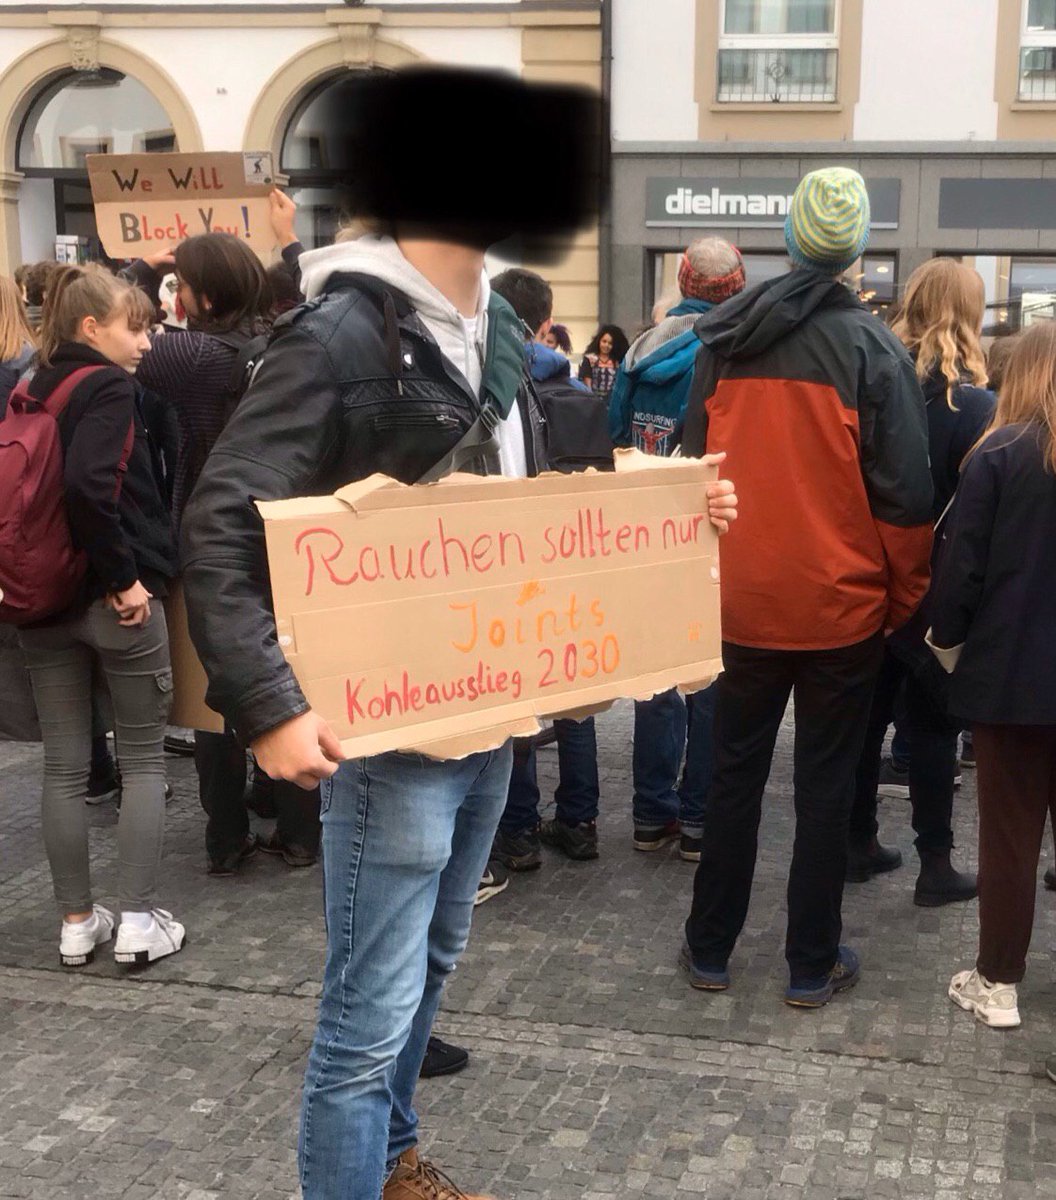 We Will
Block You!
dielmann
NDSURFING
Rauchen sollten nur
Joints
Kohleausstieg 2030